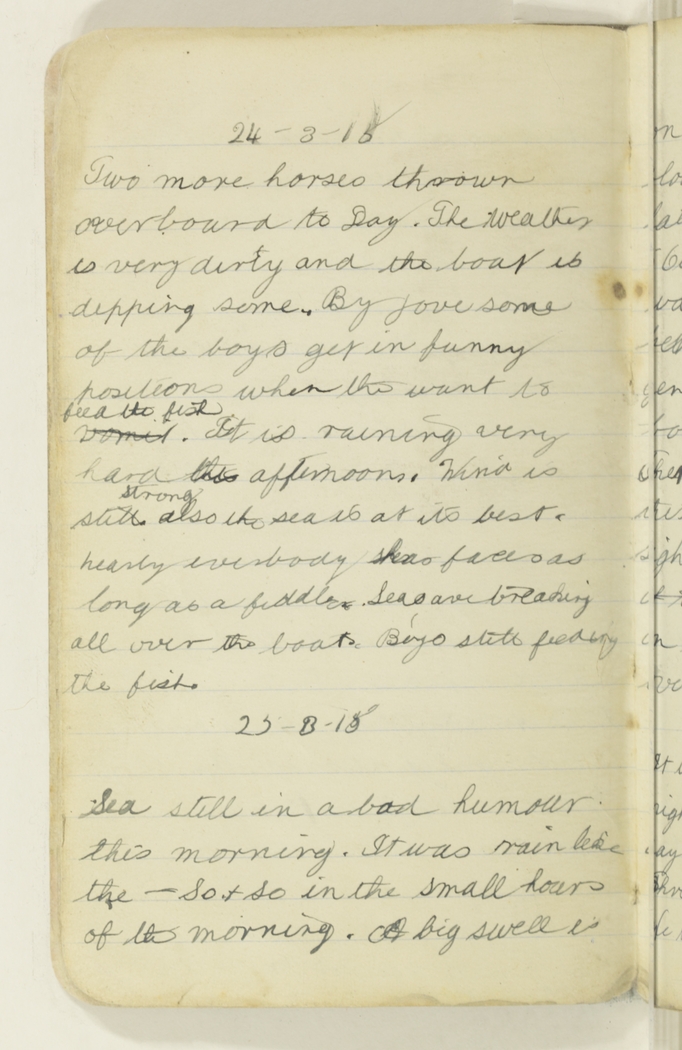 24-3-15
Two more horses thrown
overboard to Day. The Weather
is very dirty and the boat is
depping some. By jove some
of the boys get in funny
positions when the want to
feed the fish
vomit. It is raining very
hard this afternoon. Wind is
strong
still also the sea is at its best.
nearly everbody has faces as
long as a fiddle. Seas are breaking
all over the boat. Boys still feeding
the fish.
25-3-15
Sea still in a bad humour
this morning. It was rain like
the - So + So in the small hours
of the morning. A big swell is